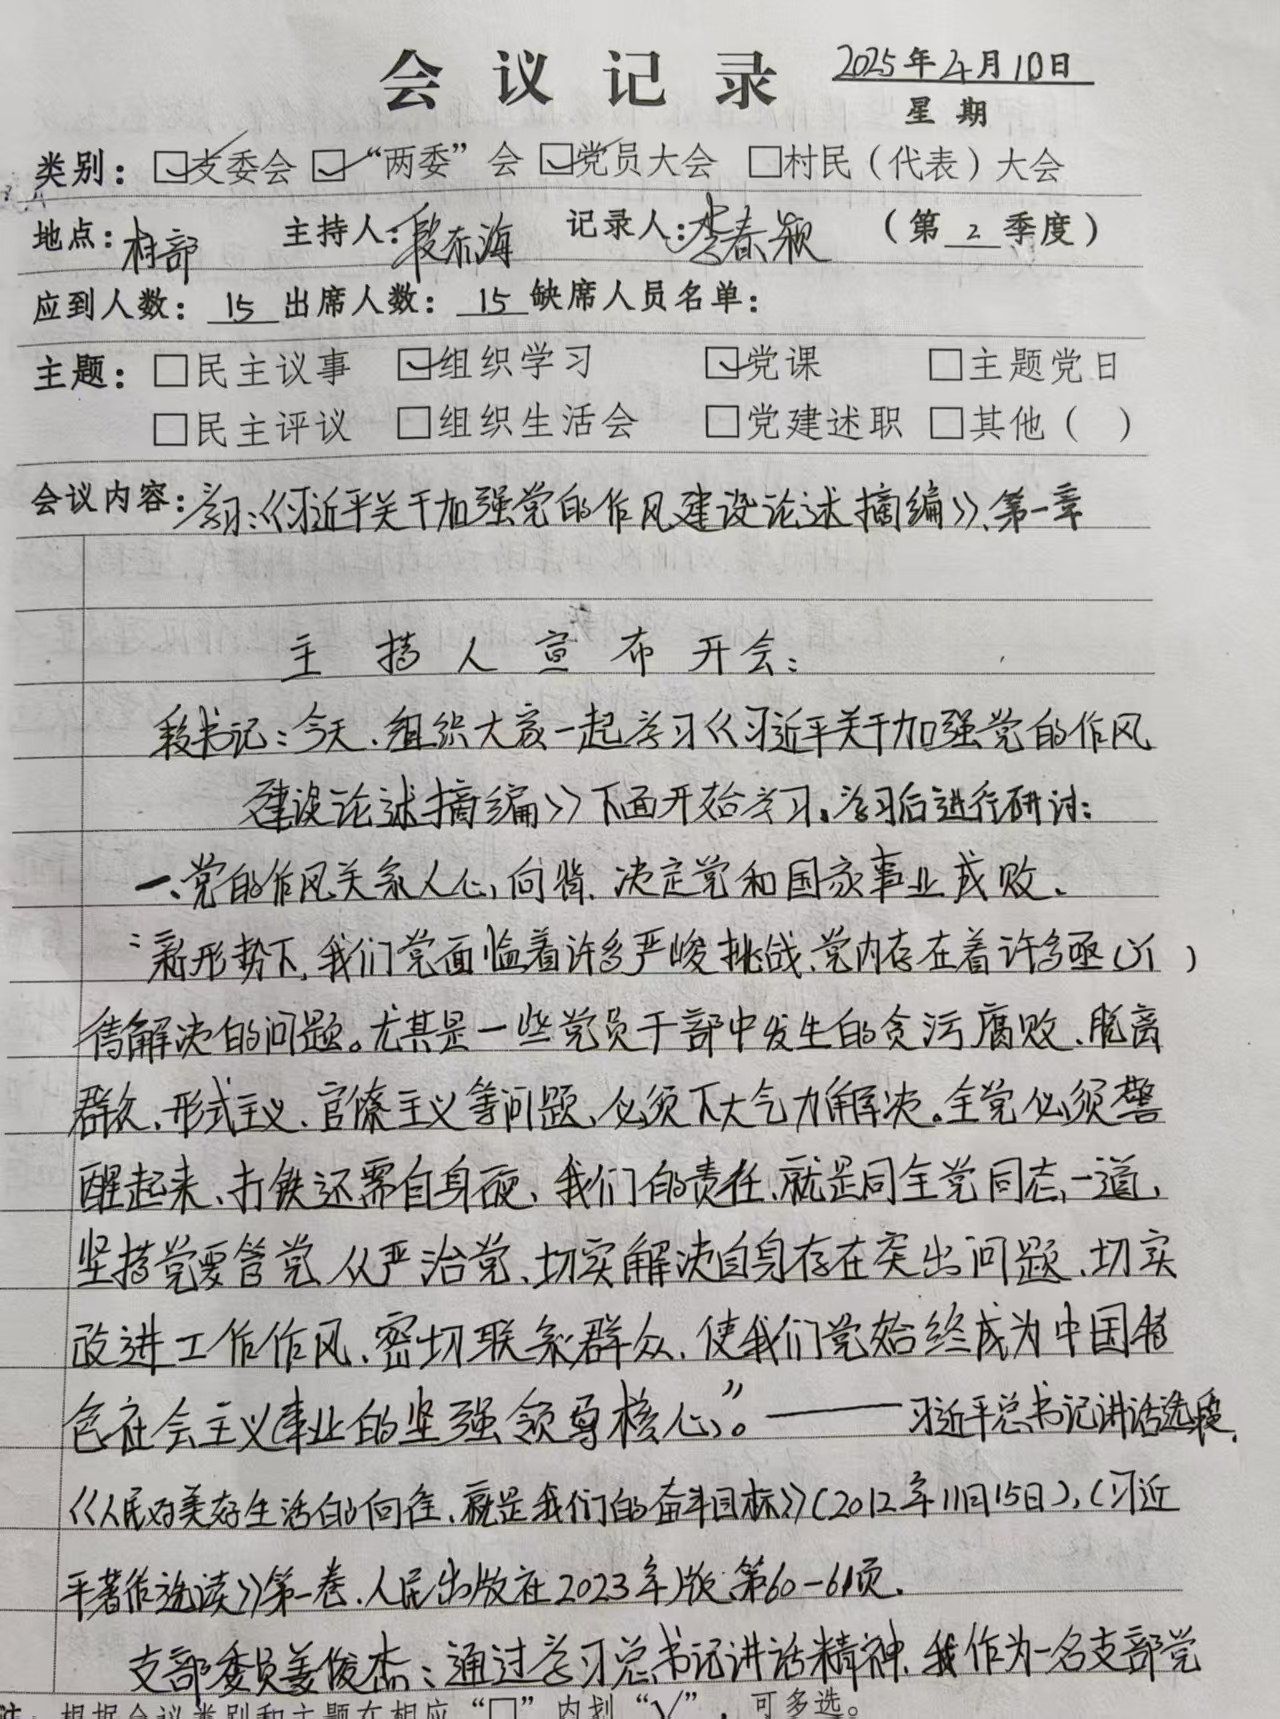 会议记录 2025年4月10日
星期
类别：☑支委会 ☑“两委”会 ☑党员大会 □村民（代表）大会
地点：村部 主持人：段亦海 记录人：李春颖 （第 2 季度）
应到人数：15 出席人数：15 缺席人员名单：
主题：□民主议事 ☑组织学习 ☑党课 □主题党日
□民主评议 □组织生活会 □党建述职 □其他（ ）
会议内容：学习：《习近平关于加强党的作风建设论述摘编》、第一章
主持人宣布开会：
段书记：今天、组织大家一起学习《习近平关于加强党的作风
建设论述摘编》下面开始学习。学习后进行研讨：
一、党的作风关系人心向背、决定党和国家事业成败、
“新形势下，我们党面临着许多严峻挑战、党内存在着许多亟（ji ）
待解决的问题。尤其是一些党员干部中发生的贪污腐败、脱离
群众、形式主义、官僚主义等问题、必须下大气力解决。全党必须警
醒起来、打铁还需自身硬、我们的责任、就是同全党同志一道，
坚持党要管党、从严治党、切实解决自身存在突出问题、切实
改进工作作风、密切联系群众、使我们党始终成为中国特
色社会主义事业的坚强领导核心”。——习近平总书记讲话选段.
《人民对美好生活的向往、就是我们的奋斗目标》（2012年11月15日），《习近
平著作选读》第一卷、人民出版社2023年版、第60-61页.
支部委员姜俊杰：通过学习总书记讲话精神、我作为一名支部党
注：根据会议类别和主题在相应“□”内划“√”，可多选。